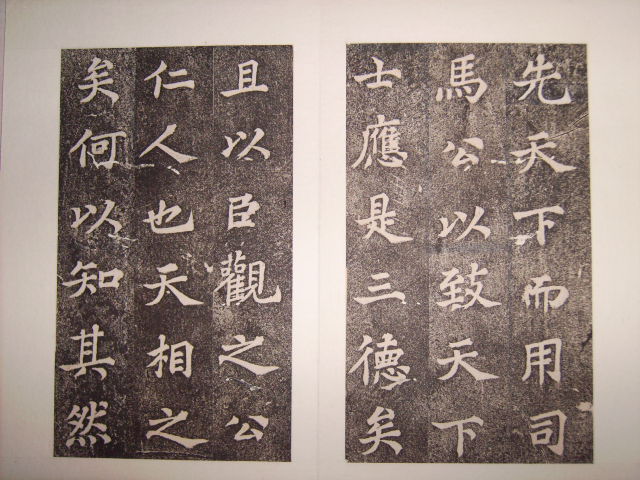 先天下而用司
馬公以致天下
士應是三德矣
且以臣觀之公
仁人也天相之
矣何以知其然